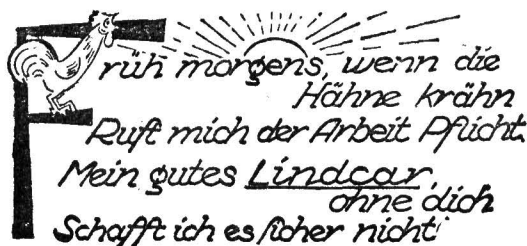 Früh morgens, wenn die
Hähne krähn
Ruft mich der Arbeit Pflicht.
Mein gutes Lindcar,
ohne dich
Schafft ich es sicher nicht!